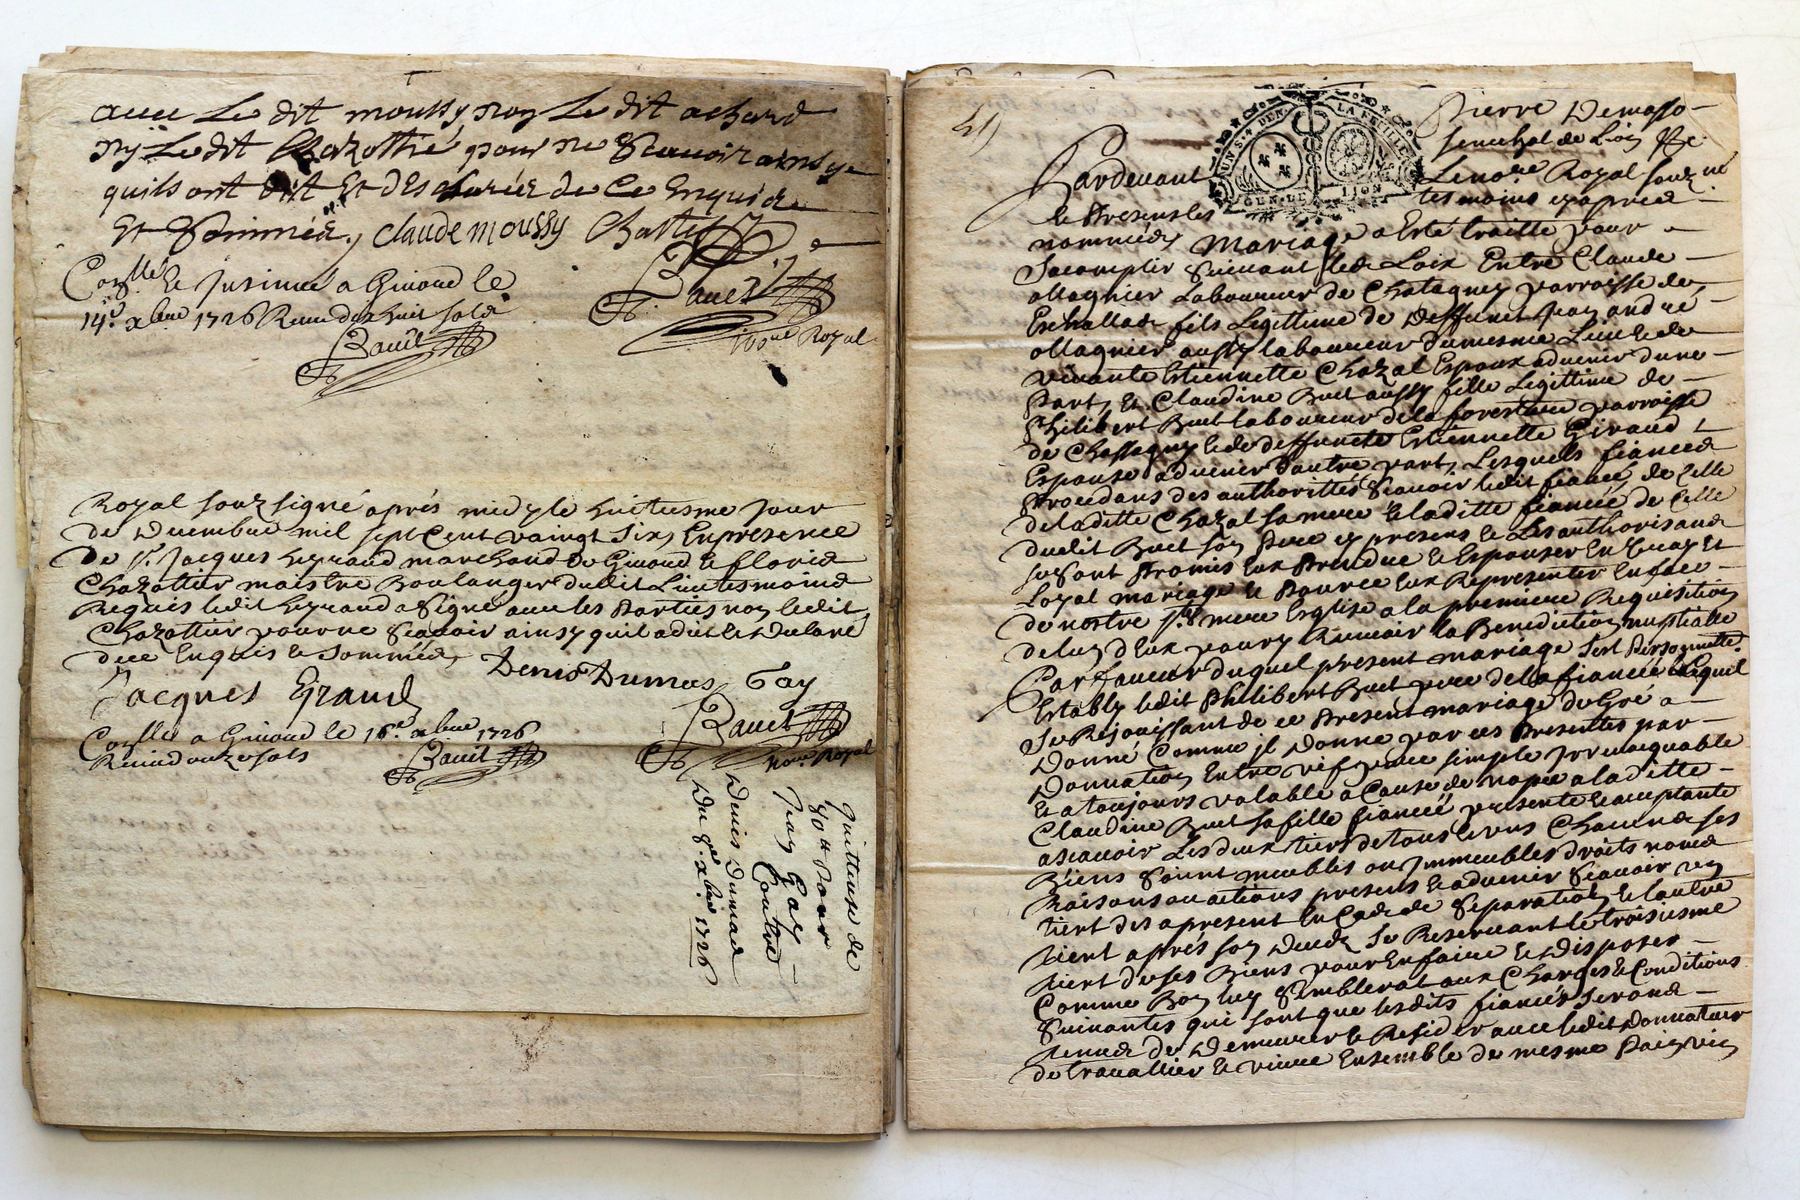 auec Le dit moussy non Le dit achard
ny Le dit Chazottié pour ne Scauoir ainsy
quils ont dit Et desclarés de Ce Enquis
Et Sommés, claude moussy
Conllé Et Insinué a Giuord le
14e xbre 1726 Receu dix huit sols
Bauit
Bauit
nore Royal
Royal soubsigné après midy le huitiesme jour
de Decembre mil sept Cent vaingt Six, En presence
de sr. Jacques Leyraud marchand de Giuord & florid
Chazottier maistre Boulanger dudit Lieu tesmoins
Requis ledit Leyraud a Signé auec les Parties non ledit
Chazottier pour ne Scauoir ainsy quil a dit & Declaré
de ce Enquis & Sommés,
Denis Dumas, Gay
Jacques
Bauit
nore Royal
Conllé a Giuord le 16e xbre 1726
Receu douze sols
Bauit
Quittance de
pour
Jean Gay
Contre
Denis Dumas
Du 8e xbre 1726
UN S. 4 DEN. LA FEUILLE
GEN. DE LION
Pardeuant
Pierre
senechal de Lion &
Le nore Royal soubsné
& Presens les
tesmoins cy après
nommés, Mariage a Esté traitté pour
Sacomplir Suiuant les Loix Entre Claude
ollagnier Laboureur de Chatagney parroisse des
Eschallas fils Legittime de deffunct Jean andré
ollagnier aussy laboureur dumesme Lieu & de
viuante Estiennette Chazal Espoux aduenir dune
Part, Et Claudine Buet aussy fille Legittime de
Philibert Buet laboureur de la forestiere parroisse
de Chassagny & de deffuncte Estiennette Giraud
Espouse aduenir dautre part, Lesquels fiancés
Procedans des authorittés Scauoir ledit fiancé de Celle
de laditte Chazal sa mere & laditte fiancée de Celle
dudit Buet son Pere cy presens & Les authorisans
se sont Promis Eux Prendre & Espouser En vray Et
Loyal mariage & Pource Eux Representer En face
de nostre ste mere Esglise a la premiere Requisition
de lun deux pour y Receuoir la Benediction nuptialle
En faueur duquel present mariage sest Personnellet
Estably ledit Philibert Buet pere de la fiancée Lequel
Se Rejouissant de ce Present mariage de Gré a
Donné Comme jl Donne par ces Presentes par
Donnation Entre vifs pure simple Irreuocquable
Et a toujours valable a Cause de nopce a laditte
Claudine Buet sa fille fiancée presente & acceptante
ascauoir Les deux tiers de tous & uns Chacuns ses
Biens Soint meubles ou Jmmeubles droits noms
Raisons ou actions presens & aduenir Scauoir un
tiert des apresent En Cas de Separation & lautre
tiert après son deceds Se Reseruant le troisiesme
tiert de ses Biens pour En faire & Disposer
Comme Bon luy Semblerat aux Charges & Conditions
Suiuantes qui sont que lesdits fiancés Seront
tenus de Demeurer & Resider auec ledit Donnateur
de trauallier & viure Ensemble de mesme Pain vin